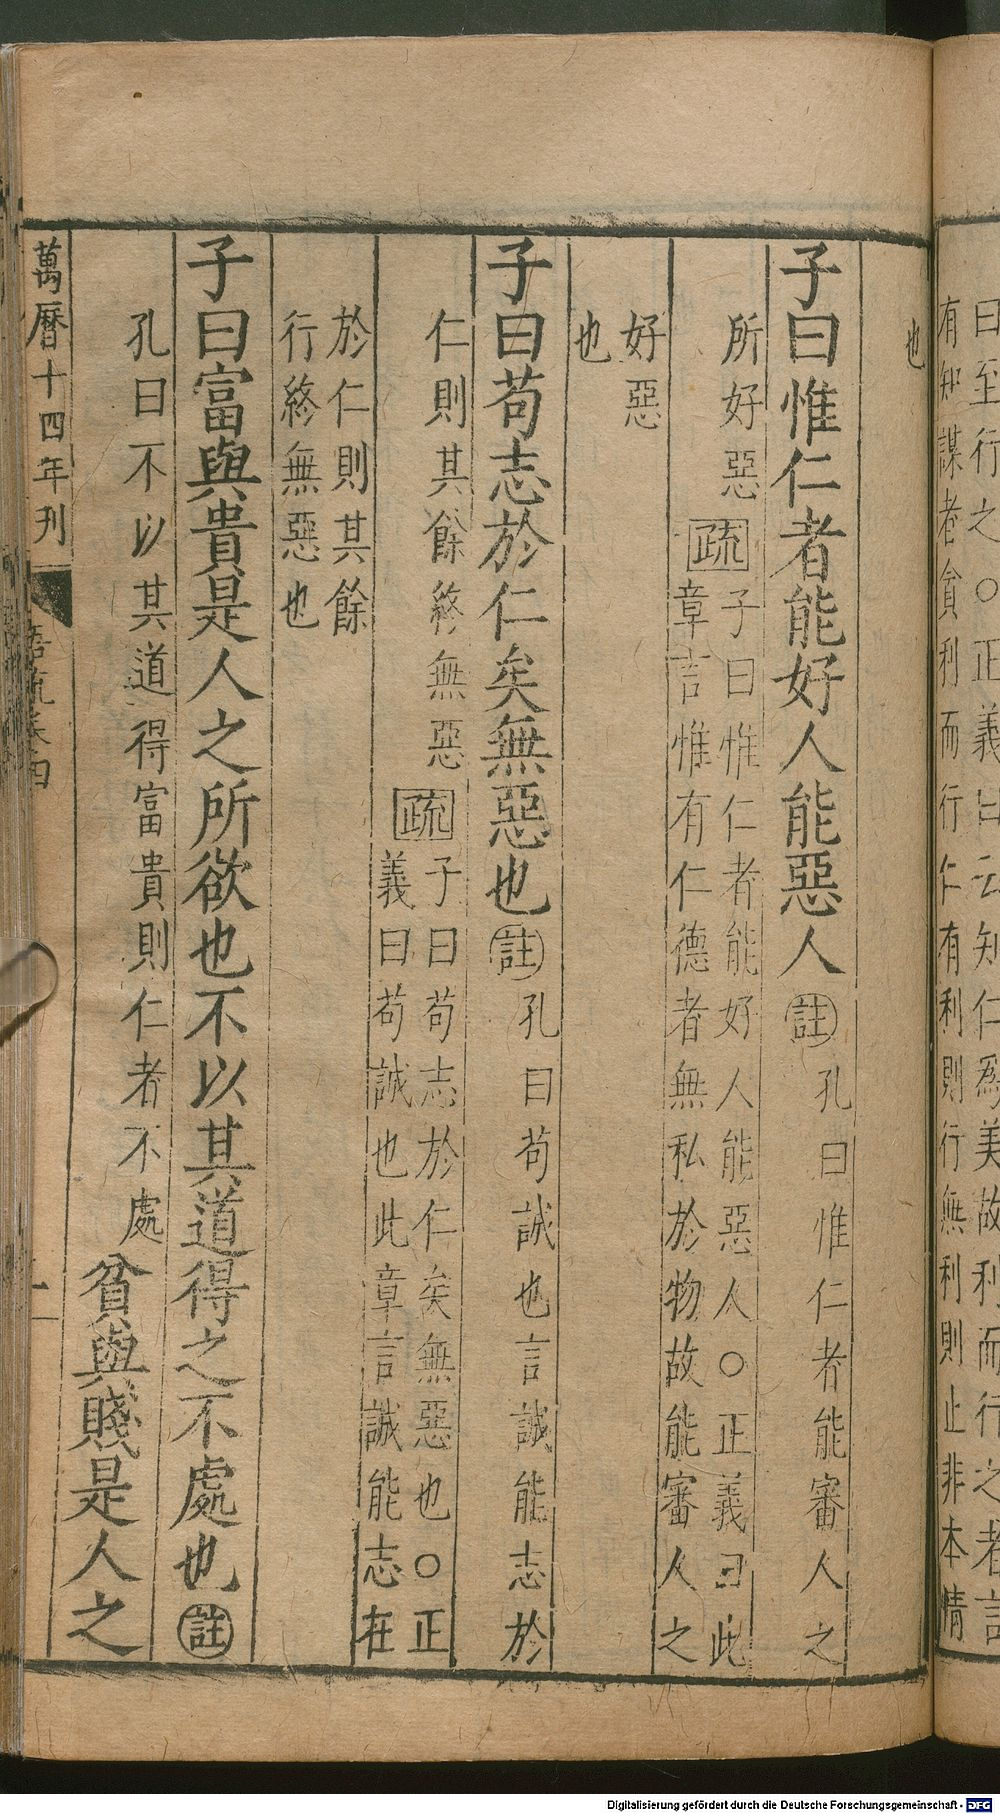 曰至行之○正義曰云知仁為美故利而行之者言
有知謀者貪利而行仁有利則行無利則止非本情
也
子曰惟仁者能好人能惡人註孔曰惟仁者能審人之
所好惡疏子曰惟仁者能好人能惡人○正義曰此
章言惟有仁德者無私於物故能審人之
好惡
也
子曰苟志於仁矣無惡也註孔曰苟誠也言誠能志於
仁則其餘終無惡疏子曰苟志於仁矣無惡也○正
義曰苟誠也此章言誠能志在
於仁則其餘
行終無惡也
子曰富與貴是人之所欲也不以其道得之不處也註
孔曰不以其道得富貴則仁者不處貧與賤是人之
萬曆十四年刊
語疏卷四
Digitalisierung gefördert durch die Deutsche Forschungsgemeinschaft - DFG